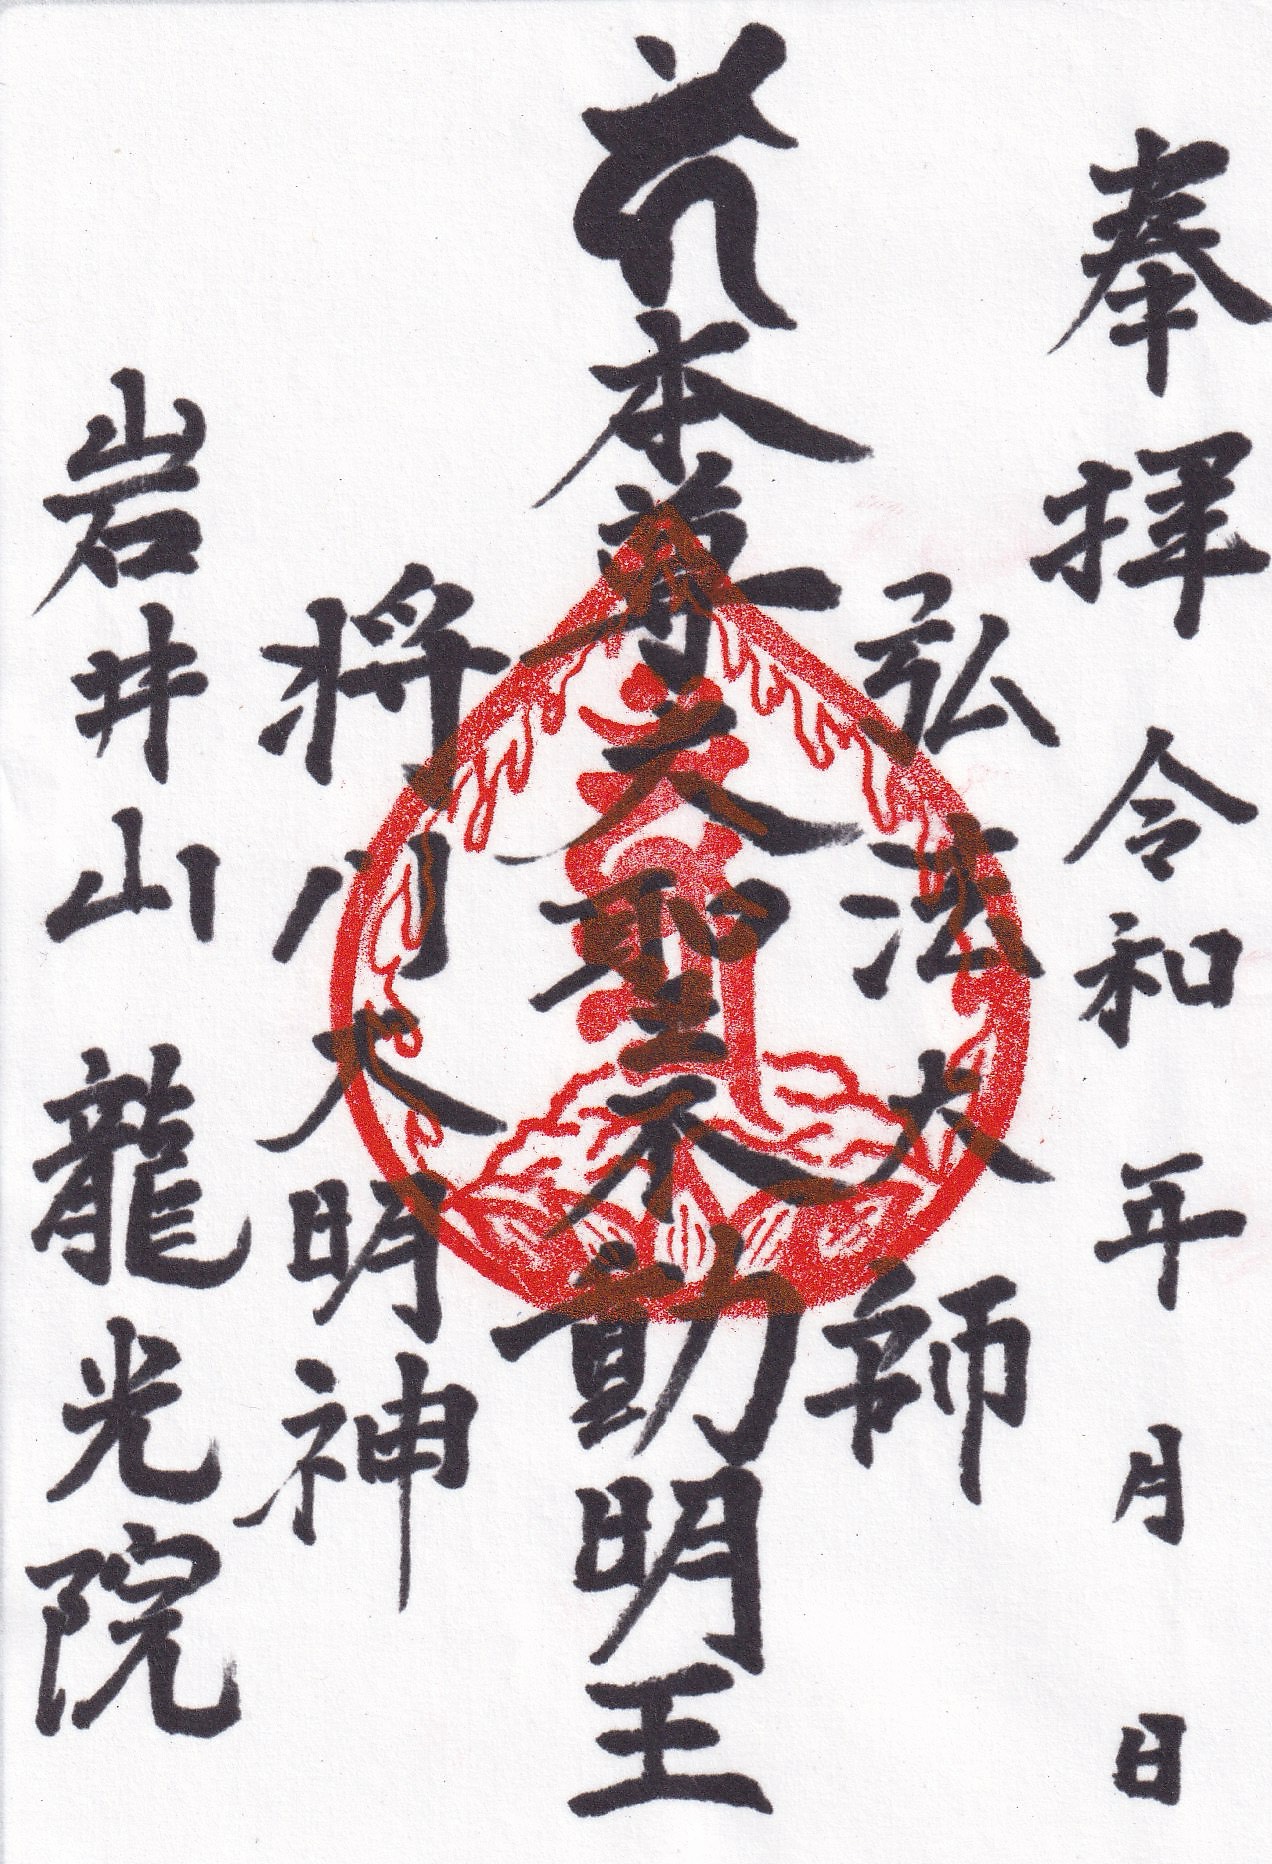 奉拝 令和 年 月 日
弘法大師
本尊大聖不動明王
将門大明神
岩井山 龍光院